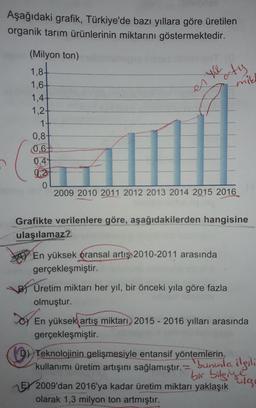 Aşağıdaki grafik, Türkiye'de bazı yıllara göre üretilen
organik tarım ürünlerinin miktarını göstermektedir.
(Milyon ton)
1,8
1,6
1,4
1,2
1
0,8
0,6
0,4
0,2
0
en yük artış
mik
2009 2010 2011 2012 2013 2014 2015 2016
Grafikte verilenlere göre, aşağıdakilerden hangisine
ulaşılamaz?
A) En yüksek oransal artış 2010-2011 arasında
gerçekleşmiştir.
B) Üretim miktarı her yıl, bir önceki yıla göre fazla
olmuştur.
C) En yüksek artış miktarı, 2015 - 2016 yılları arasında
gerçekleşmiştir.
D) Teknolojinin gelişmesiyle entansif yöntemlerin
kullanımı üretim artışını sağlamıştır. = bununla ilgili
bir bilgi
E) 2009'dan 2016'ya kadar üretim miktarı yaklaşık
olarak 1,3 milyon ton artmıştır.